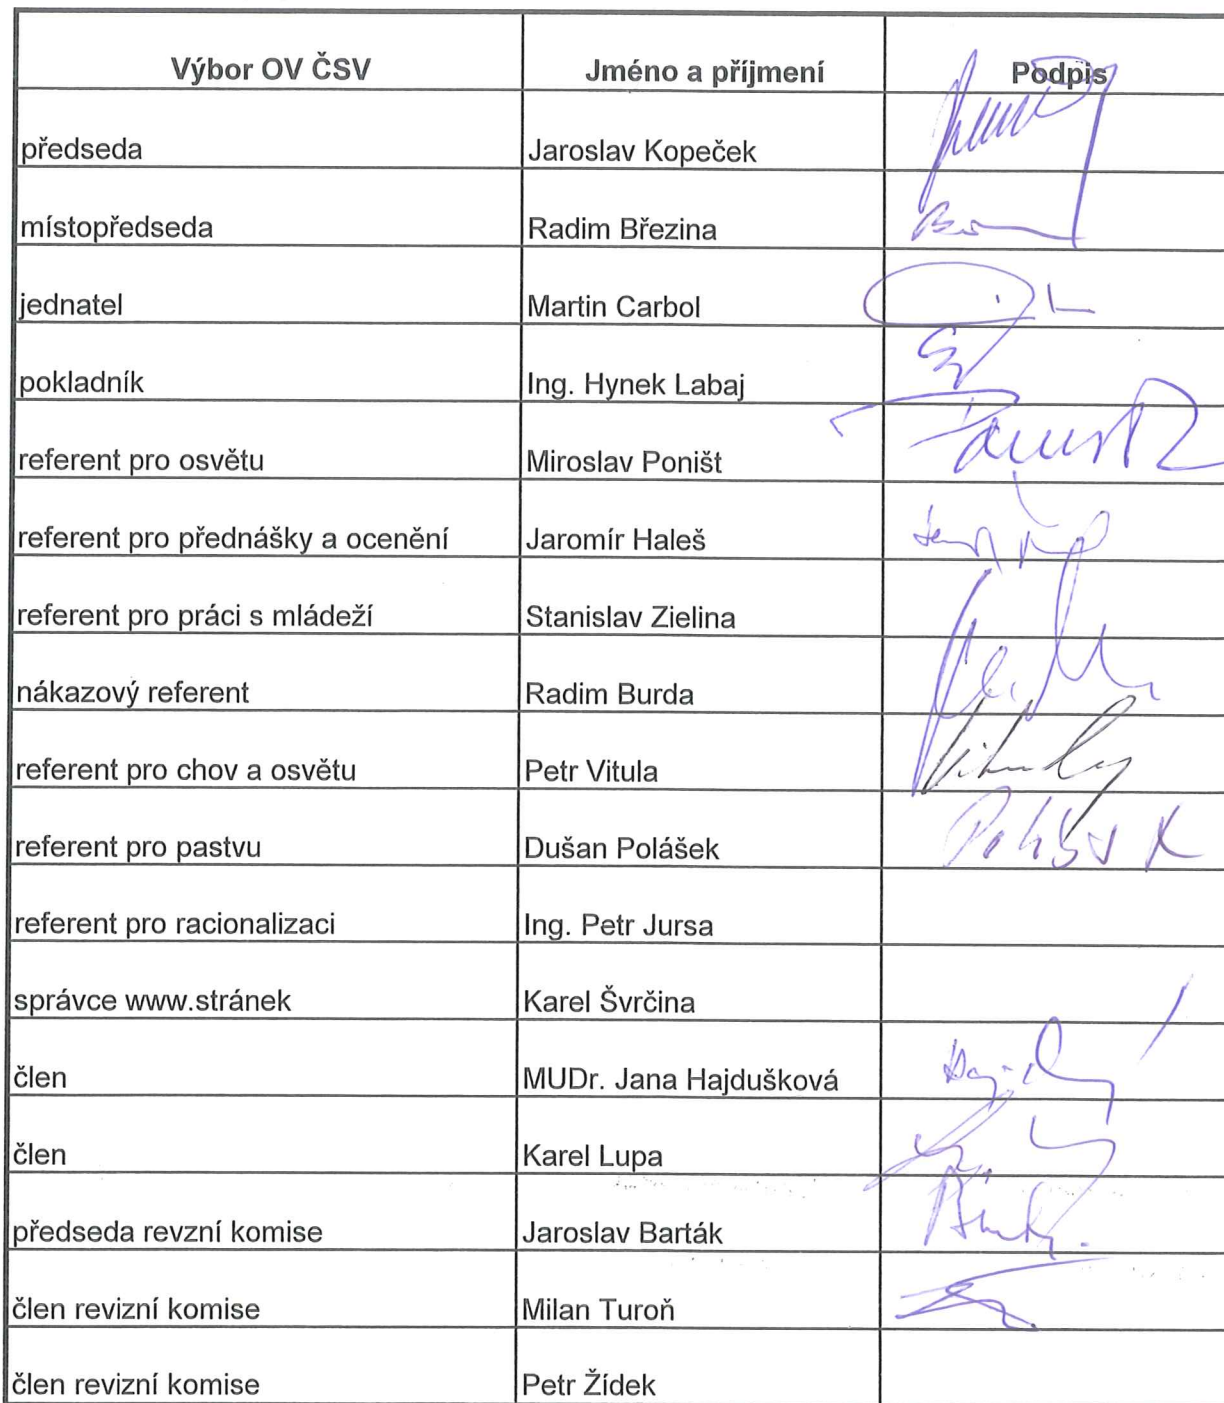 Výbor OV ČSV Jméno a příjmení Podpis
předseda Jaroslav Kopeček
místopředseda Radim Březina
jednatel Martin Carbol
pokladník Ing. Hynek Labaj
referent pro osvětu Miroslav Poništ
referent pro přednášky a ocenění Jaromír Haleš
referent pro práci s mládeží Stanislav Zielina
nákazový referent Radim Burda
referent pro chov a osvětu Petr Vitula
referent pro pastvu Dušan Polášek
referent pro racionalizaci Ing. Petr Jursa
správce www.stránek Karel Švrčina
člen MUDr. Jana Hajdušková
člen Karel Lupa
předseda revzní komise Jaroslav Barták
člen revizní komise Milan Turoň
člen revizní komise Petr Žídek